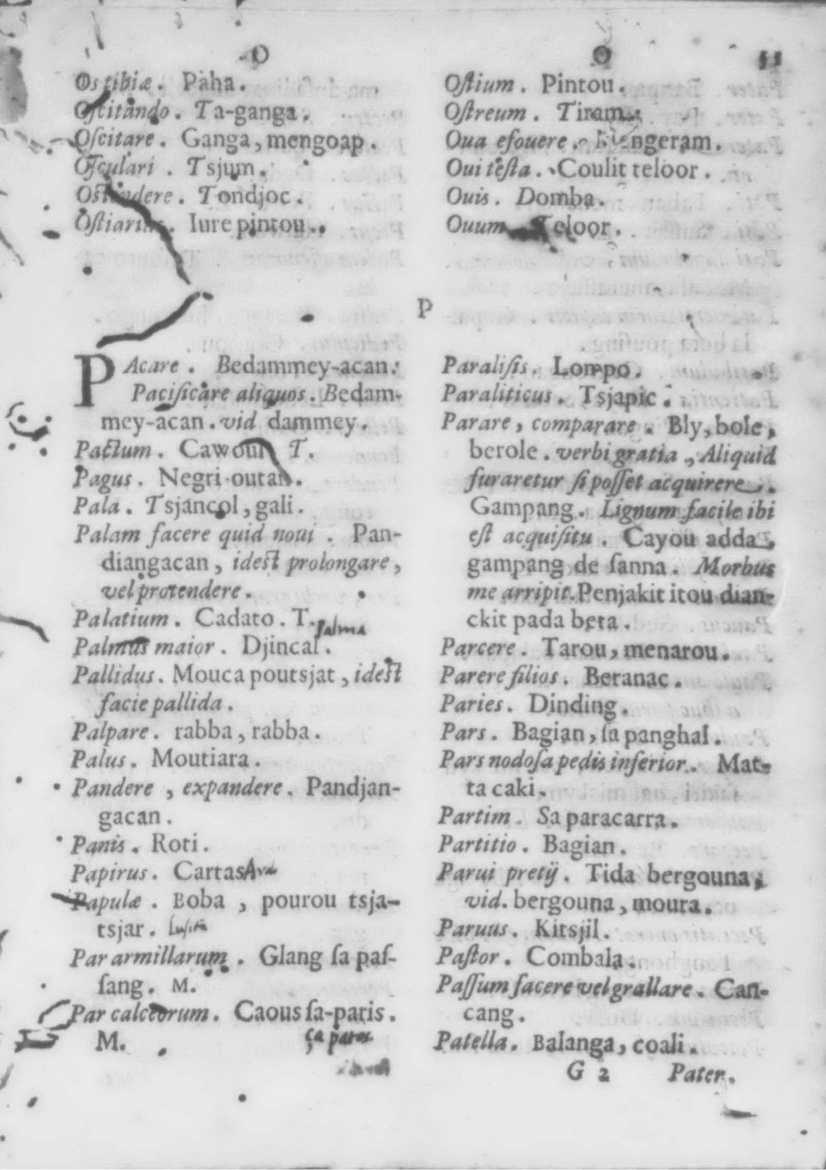 O
Ostibiæ. Paha.
Oſcitando. Ta-ganga.
Oſcitare. Ganga, mengoap.
Oſculari. Tsjum.
Oſtendere. Tondjoc.
Oſtiarius. Iure pintou.
O 51
Oſtium. Pintou.
Oſtreum. Tiram.
Oua efouere. Mengeram.
Oui teſta. Coulit teloor.
Ouis. Domba.
Ouum. Teloor.
P
PAcare. Bedammey-acan.
Pacificare aliquos. Bedam-
mey-acan. vid dammey.
Pactum. Cawoull T.
Pagus. Negri outan.
Pala. Tsjancol, gali.
Palam facere quid noui. Pan-
diangacan, ideſt prolongare,
vel protendere.
Palatium. Cadato. T.
palma
Palmus maior. Djincal.
Pallidus. Mouca poutsjat, ideſt
facie pallida.
Palpare. rabba, rabba.
Palus. Moutiara.
Pandere, expandere. Pandjan-
gacan.
Panis. Roti.
Papirus. Cartas
Papulæ. Boba, pourou tsja-
tsjar.
Par armillarum. Glang ſa paſ-
ſang. M.
Par calceorum. Caous ſa-paris.
M. ſa paros
Paraliſis. Lompo.
Paraliticus. Tsjapic.
Parare, comparare. Bly, bole,
berole. verbi gratia, Aliquid
furaretur ſi poſſet acquirere.
Gampang. Lignum facile ibi
eſt acquiſitu Cayou adda,
gampang de ſanna. Morbus
me arripit. Penjakit itou dian-
ckit pada beta.
Parcere. Tarou, menarou.
Parere filios. Beranac.
Paries. Dinding.
Pars. Bagian, ſa panghal.
Pars nodoſa pedis inferior. Mat-
ta caki.
Partim. Sa paracarra.
Partitio. Bagian.
Parui pretij. Tida bergouna,
vid. bergouna, moura.
Paruus. Kitsjil.
Paſtor. Combala.
Paſſum facere vel grallare. Can-
cang.
Patella. Balanga, coali.
G 2 Pater.